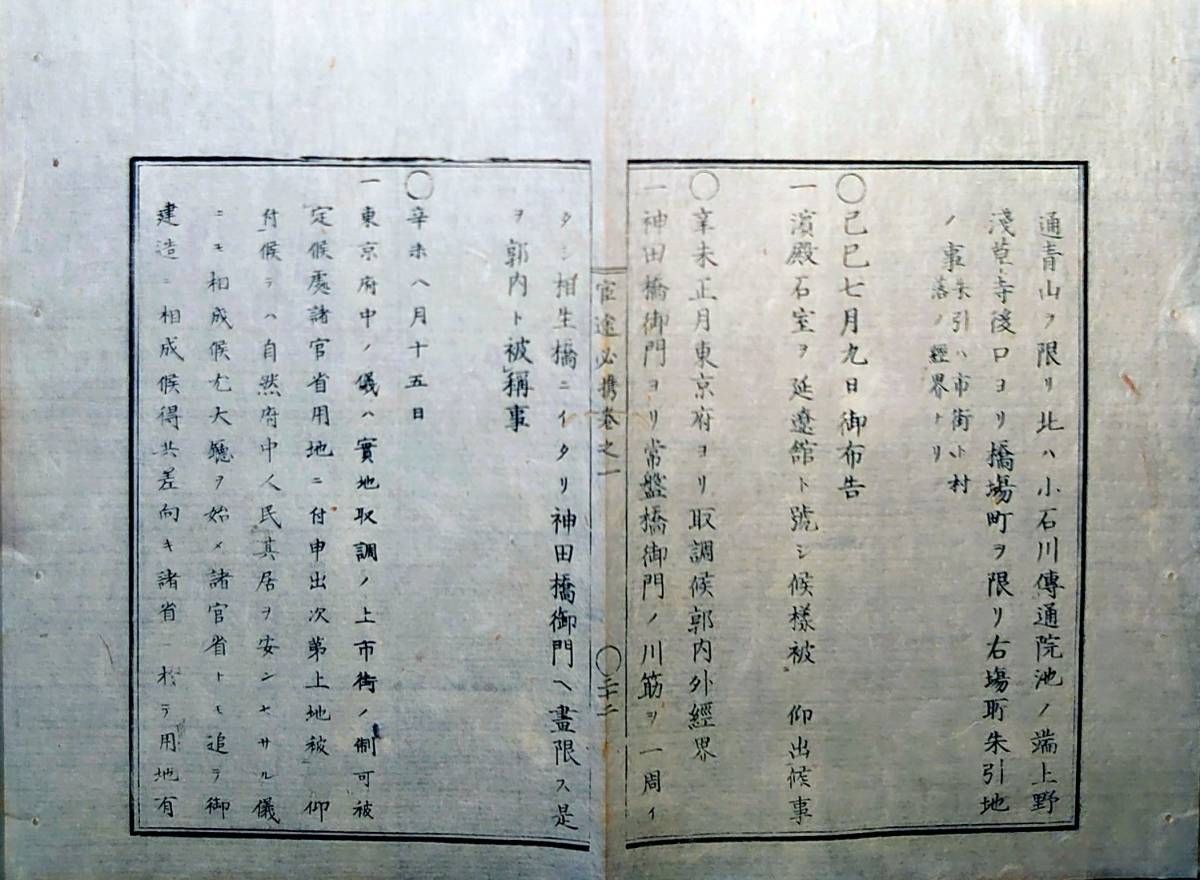 通青山ヲ限リ北ハ小石川傳通院池ノ端上野
淺草寺後口ヨリ橋塲町ヲ限リ右塲所朱引地
ノ事
朱引ハ市街ト村
落ノ經界ナリ
〇己巳七月九日御布告
一濱殿石室ヲ延遼舘ト號シ候樣被 仰出候事
〇辛未正月東京府ヨリ取調候郭内外經界
一神田橋御門ヨリ常盤橋御門ノ川筋ヲ一周イ
宦途必携卷之一
〇二十二
タシ相生橋ニイタリ神田橋御門ヘ畫限ス是
ヲ郭内ト被稱事
〇辛未八月十五日
一東京府中ノ儀ハ實地取調ノ上市街ノ制可被
定候處諸官省用地ニ付申出次第上地被 仰
付候テハ自然府中人民其居ヲ安ンセサル儀
ニモ相成候尤大廳ヲ始メ諸官省トモ追テ御
建造ニ相成候得共差向キ諸省ニ於テ用地有